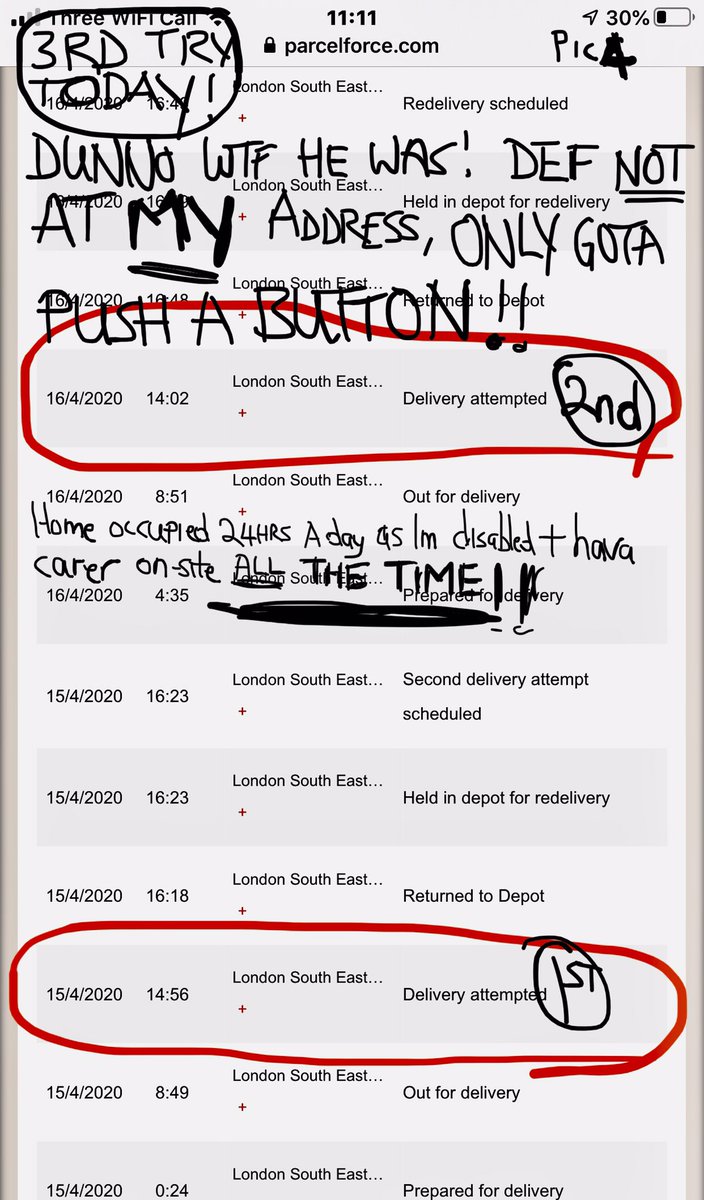 Three WiFi Call 11:11 30%
3RD TRY parcelforce.com PIC 4
TODAY!
16/4/2020 London South East… Redelivery scheduled
+
DUNNO WTF HE WAS! DEF NOT
London South East… Held in depot for redelivery
+
AT MY ADDRESS, ONLY GOTA
16/4/2020 16:48 London South East… Returned to Depot
+
PUSH A BUTTON!!
16/4/2020 14:02 London South East… Delivery attempted 2nd
+
16/4/2020 8:51 London South East… Out for delivery
+
Home occupied 24HRS A day as Im disabled + hava
carer on-site ALL THE TIME!!!
16/4/2020 4:35 London South East… Prepared for delivery
15/4/2020 16:23 London South East… Second delivery attempt
+ scheduled
15/4/2020 16:23 London South East… Held in depot for redelivery
+
15/4/2020 16:18 London South East… Returned to Depot
+
15/4/2020 14:56 London South East… Delivery attempted 1ST
+
15/4/2020 8:49 London South East… Out for delivery
+
15/4/2020 0:24 London South East… Prepared for delivery
+